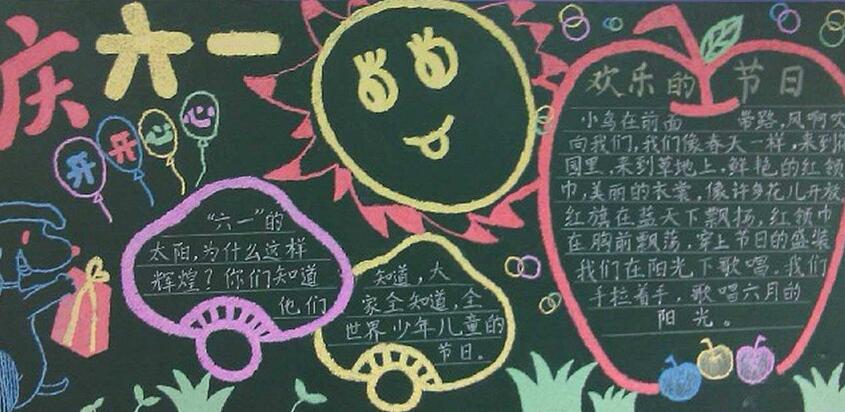 庆六一
开
开
心
心
“六一”的
太阳，为什么这样
辉煌？你们知道
他们
知道，大
家全知道，全
世界少年儿童的
节日。
欢乐的节日
小鸟在前面 带路，风啊吹
向我们，我们像春天一样，来到花
园里，来到草地上，鲜艳的红领
巾，美丽的衣裳，像许多花儿开放
红旗在蓝天下飘扬，红领巾
在胸前飘荡，穿上节日的盛装
我们在阳光下歌唱。我们
手拉着手，歌唱六月的
阳光。